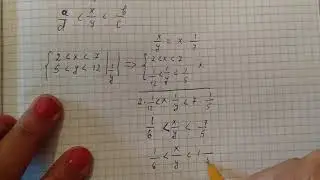 a/d < x/y < b/c
x/y = x · 1/y
{ 2 < x < 7
5 < y < 12 | 1/y => { 2 < x < 7
1/12 < 1/y < 1/5 ×
2 · 1/12 < x · 1/y < 7 · 1/5
1/6 < x/y < 7/5
1/6 < x/y < 1